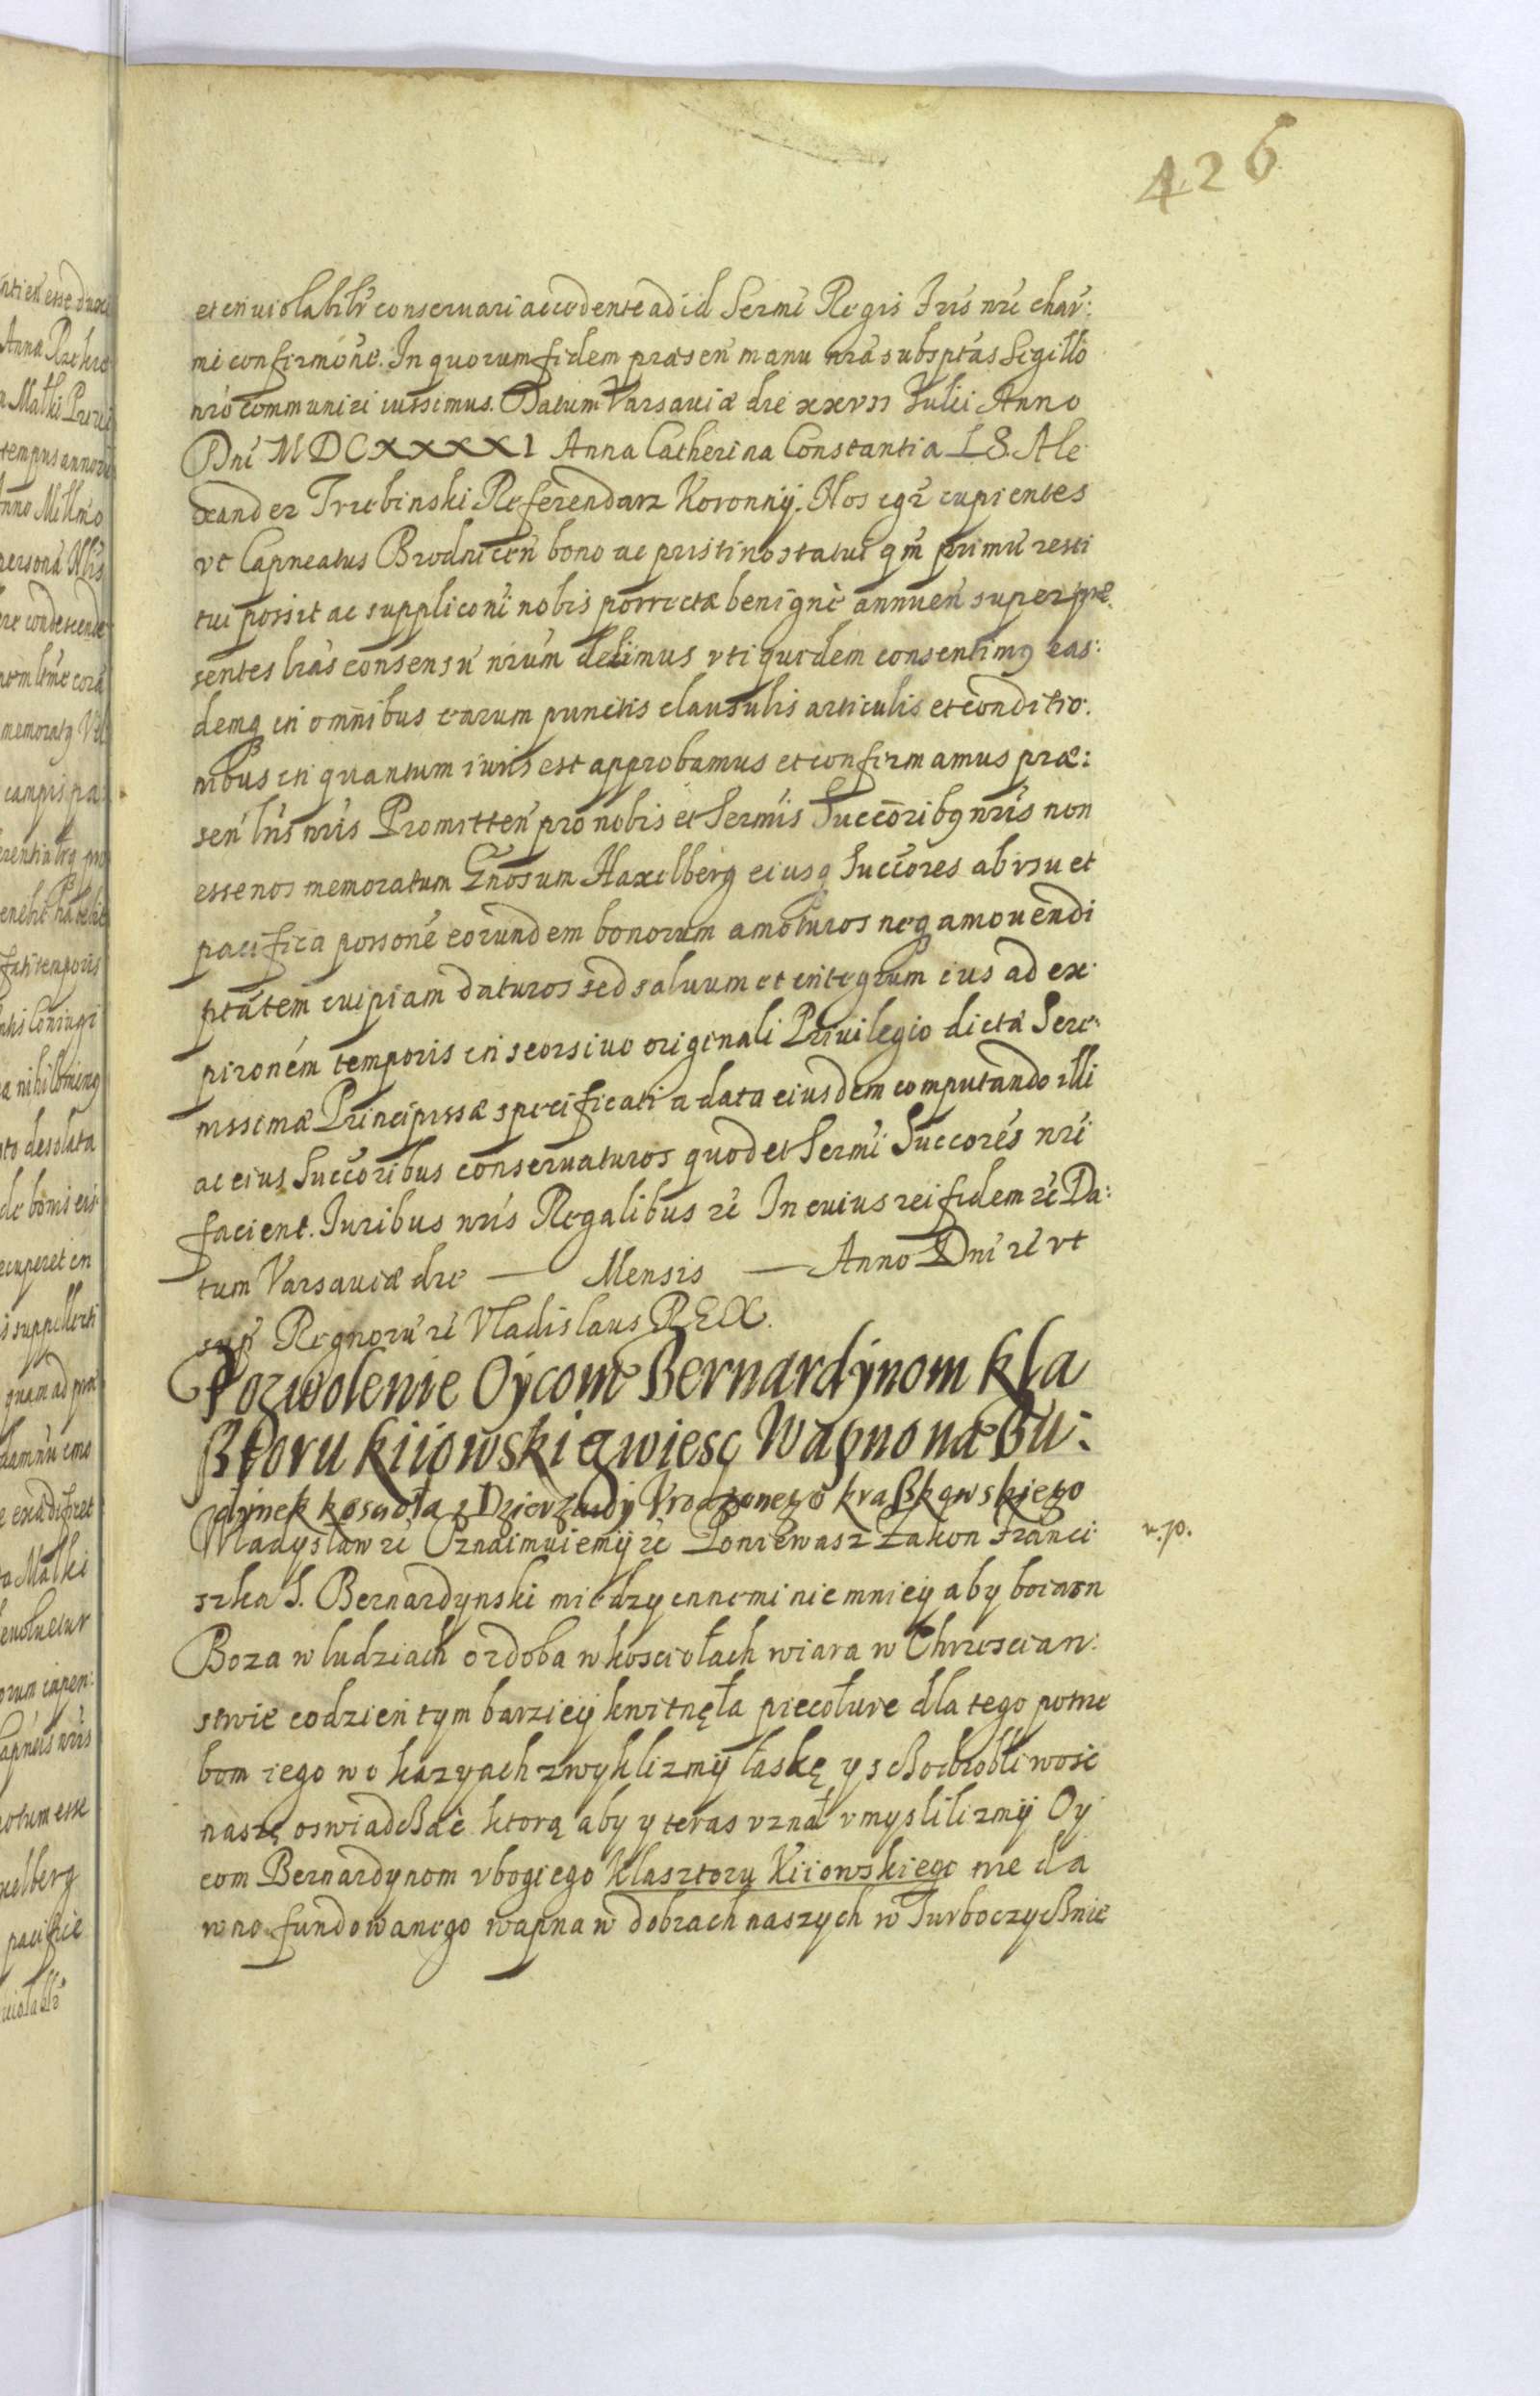 426
et inuiolabilr̃ conseruari accedente ad id Sermi Regis Fris nri char:
mi confirmone. In quorum fidem præsen manu nra subsptas Sigillo
nro communiri iussimus. Datum Varsauiæ die xxvii Iulii Anno
Dni MDCXXXXI Anna Catherina Constantia LS. Ale
xander Trzebinski Referendarz Koronny. Nos igr cupientes
vt Capneatus Brodnicen bono ac pristino statui qm primu resti
tui possit ac suppliconi nobis porrectæ benigne annuen super præ
sentes lras consensu nrum dedimus vti quidem consentimq eas:
demq in omnibus earum punctis clausulis articulis et conditio.
nibus in quantum iuris est approbamus et confirmamus præ:
sen lris nris Promitten pro nobis et Sermis Succoribq nris non
esse nos memoratum Gnosum Haxelberg eiusq Succores ab vsu et
pacifica possone eorundem bonorum amoturos neq amouendi
ptatem cuipiam daturos sed saluum et integrum ius ad ex
pironem temporis in seorsiuo originali Priuilegio dictæ Sere
nissimæ Principissæ specificati a data eiusdem computando illi
ac eius Succoribus conseruaturos quod et Sermi Succores nri
facient. Iuribus nris Regalibus rc In cuius rei fidem rc Da:
tum Varsauiæ die — Mensis — Anno Dni rc vt
sup Regnoru rc Vladislaus REX.
Pozwolenie Oycom Bernardynom kla
sztoru kiiowskie wiesc Wapno na Bu:
dynek koscioła z Dzierzawy Vrodzonego kraszkowskiego
Władysław rc Oznaimuiemy rc Poniewasz Zakon Franci
szka S. Bernardynski miedzy innemi nie mniey aby boiazn
Boza w ludziach ozdoba w kosciołach wiara w Chrzescian:
stwie codzien tym barziey kwitnęła piecołuie dla tego potrze
bom iego w o kazyach zwyklizmy łaskę y sczodrobliwosc
naszę oswiadczac ktorą aby y teras vznał vmyslilizmy Oy
com Bernardynom vbogiego klasztoru Kiiowskiego nie da
wno fundowanego wapna w dobrach naszych w Turboczycznie